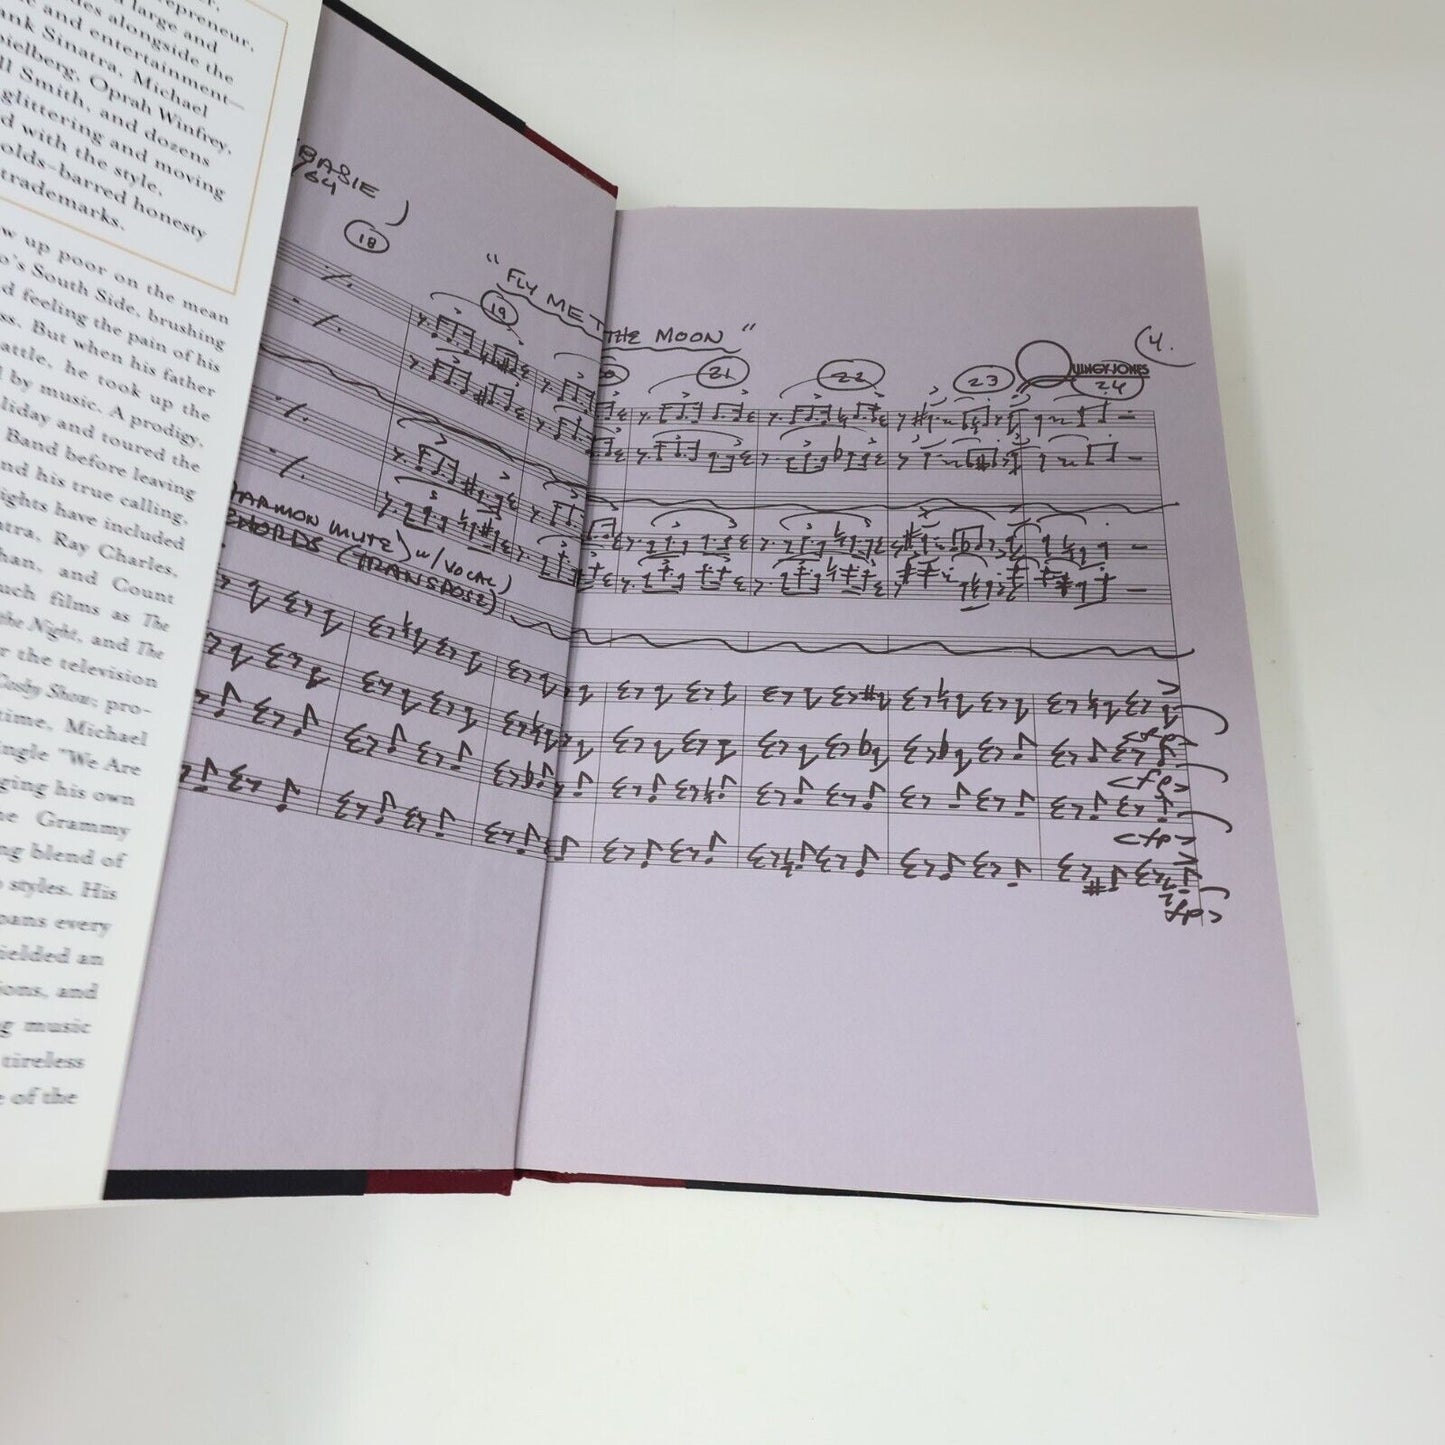 epreneur,
a large and
des alongside the
and entertainment—
ank Sinatra, Michael
pielberg, Oprah Winfrey,
ll Smith, and dozens
glittering and moving
d with the style,
olds-barred honesty
trademarks.
w up poor on the mean
o's South Side, brushing
d feeling the pain of his
ss. But when his father
attle, he took up the
d by music. A prodigy,
liday and toured the
Band before leaving
nd his true calling,
ights have included
tra, Ray Charles,
han, and Count
uch films as The
the Night, and The
r the television
Cosby Show; pro-
time, Michael
ingle "We Are
ging his own
e Grammy
ng blend of
o styles. His
pans every
ielded an
ions, and
g music
tireless
e of the
BASIE
/64
18
"FLY ME T THE MOON"
4.
QUINCY JONES
19
21
22
23
24
HARMON MUTE) w/VOCAL)
CHORDS (TRANSPOSE)